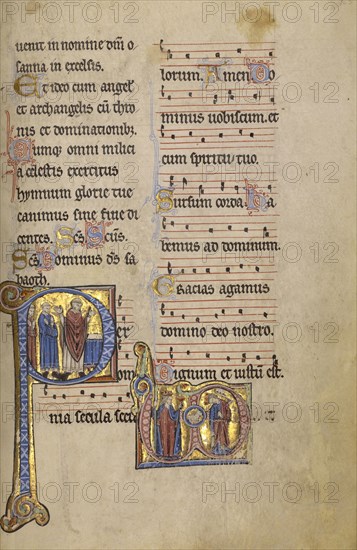 uenit in nomine dñi o
sanna in excelsis.
Et ideo cum angel'
et archangelis cũ thro
nis et dominationibz
Cumqz omni milici
a celestis exercitus
hymnum glorie tue
canimus sine fine di
centes. Scs Scs
Scs Dominus ds sa
baoth.
P er
om
nia secula secu
lorum. Amen. Do
minus uobiscum. et
cum spiritu tuo.
Sursum corda. ha
bemus ad dominum.
Gracias agamus
domino deo nostro.
Dignum et iustũ est.
PHOTO12